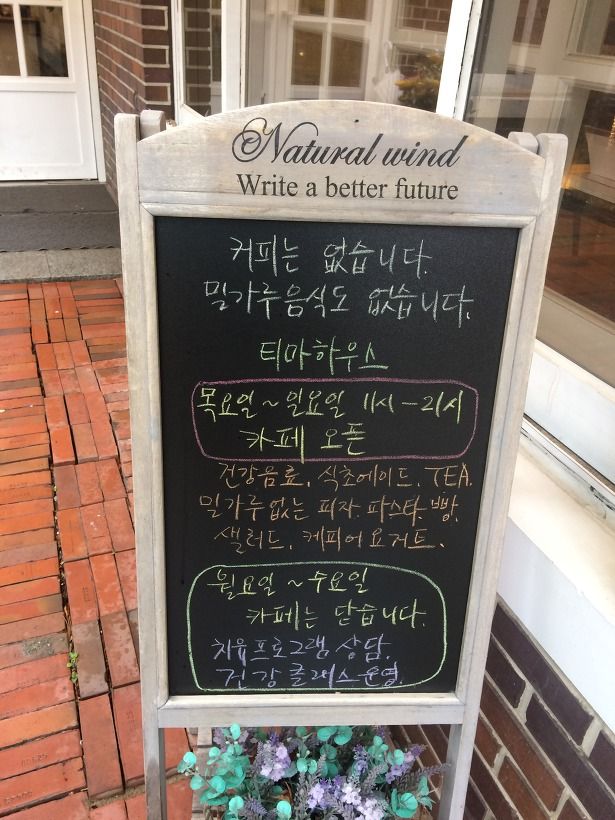 Natural wind
Write a better future
커피는 없습니다.
밀가루음식도 없습니다.
티마하우스
목요일~일요일 11시-21시
카페 오픈
건강음료, 식초에이드, TEA.
밀가루없는 피자. 파스타. 빵.
샐러드, 케피어요거트.
월요일~수요일
카페는 닫습니다.
치유프로그램 상담.
건강클래스운영.